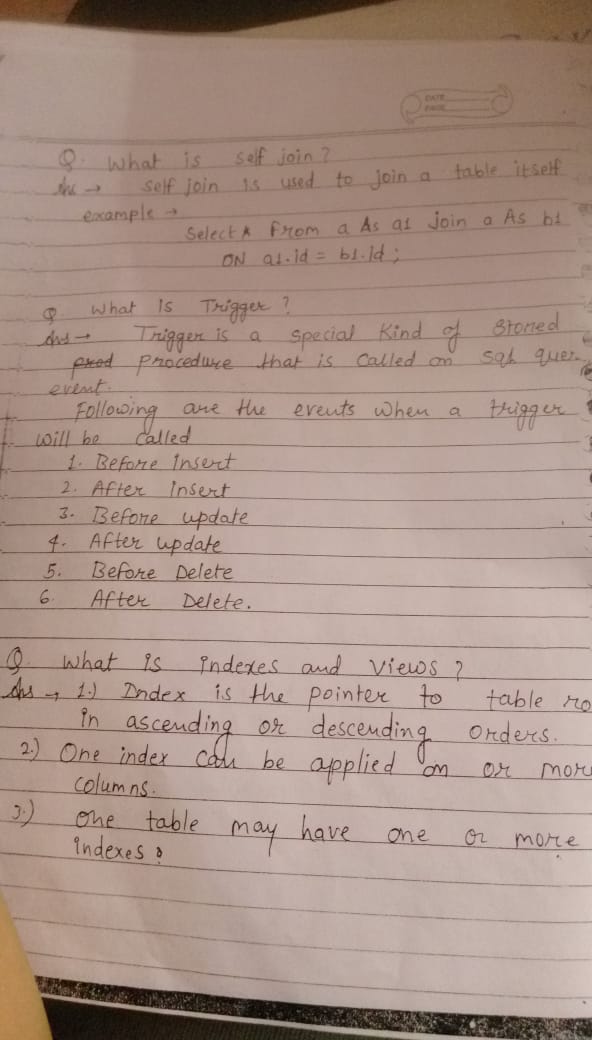 DATE
PAGE
Q. What is self join?
Ans → self join is used to join a table itself
example →
Select * From a As a1 join a As b1
ON a1.id = b1.id;
Q What Is Trigger?
Ans → Trigger is a special Kind of Stored
procedure that is called on sql quer
event.
Following are the events when a trigger
will be called
1. Before Insert
2. After Insert
3. Before update
4. After update
5. Before Delete
6. After Delete.
Q. What is indexes and views?
Ans → 1.) Index is the pointer to table ro
in ascending or descending orders.
2.) One index can be applied on or more
columns.
3.) one table may have one or more
indexes.